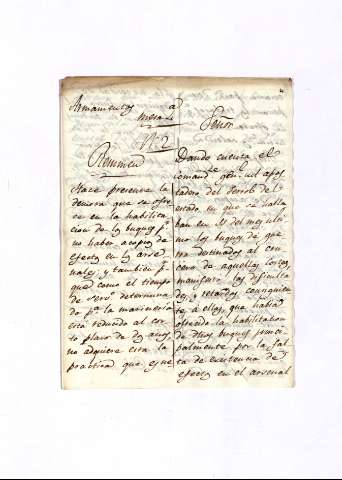 Armamentos
mesa 4ª
Nº 2
Resumen
Hace presente la
demora que se ofre
ce en la habilita
cion de los buques pr.
no haber acopio de
efectos en los arse
nales y tambien pr.
qued como el tiempo
de servº determina
do pª la marineria
está reducido al cor
to plazo de
no adquiere esta la
practica que
Señor
Dando cuenta el
comandte. genl. del apos
tadero del Ferrol del
estado en que se halla
ban en 1º del mes ulti
mo los buques de gue
rra destinados al cru
cero de aquellas costas
manifestó las dificulta
des, y retardos consiguien
tes á ellos, que habia
ofrecido la habilitacion
de dhos buques princi
palmente por la fal
ta de existencia de
efectos en el arsenal